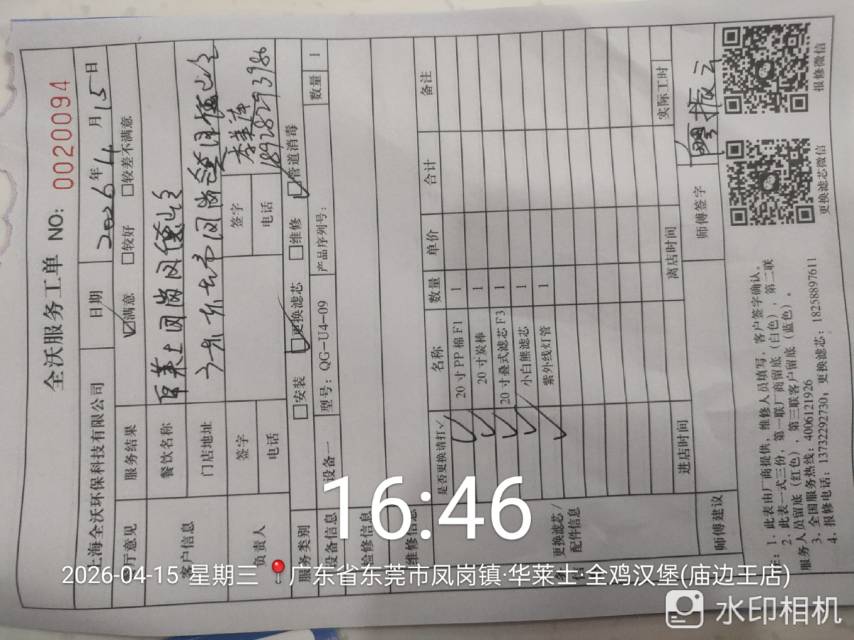 全沃服务工单 NO: 0020094
上海全沃环保科技有限公司 日期 2026年4月15日
餐厅意见 服务结果 ☑满意 □较好 □较差不满意
客户信息 餐饮名称
门店地址 广东东莞市凤岗
负责人 签字 签字
电话 电话 18928293986
服务类别 □安装 ☑更换滤芯 □维修 ☑管道消毒
设备信息 设备一 型号: QG-U4-09 产品序列号: 数量 1
检修信息
维修信息
更换滤芯/配件信息 是否更换请打√ 名称 数量 单价 合计 备注
√ 20寸PP棉F1 1
√ 20寸炭棒 1
√ 20寸叠式滤芯F3 1
√ 小白熊滤芯 1
√ 紫外线灯管 1
进店时间 离店时间 实际工时
师傅建议 师傅签字
注: 1、此表由厂商提供, 维修人员填写, 客户签字确认。
2、此表一式三份, 第一联厂商留底(白色), 第二联
服务人员留底(红色), 第三联客户留底(蓝色)。
3、全国服务热线: 4006121926
4、报修电话: 13732292730, 更换滤芯: 18258897611
更换滤芯微信 报修微信
16:46
2026-04-15 星期三 广东省东莞市凤岗镇·华莱士·全鸡汉堡(庙边王店)
水印相机